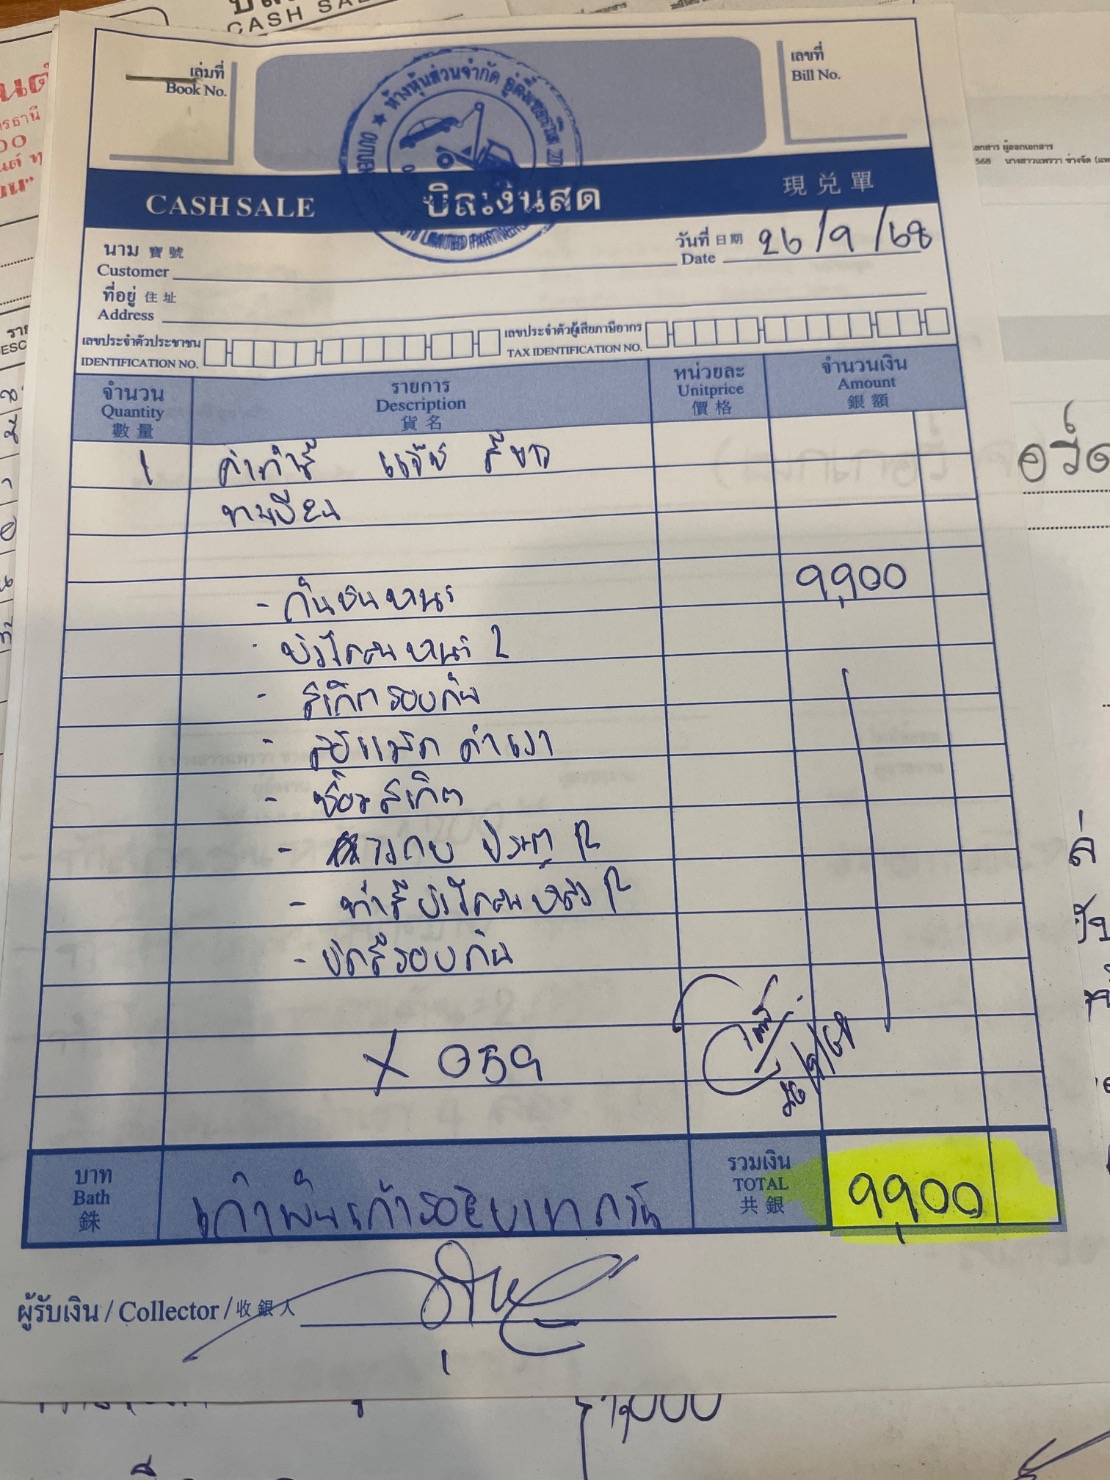 CASH SALE
เล่มที่
Book No.
เลขที่
Bill No.
ห้างหุ้นส่วนจำกัด
LIMITED PARTNER
CASH SALE บิลเงินสด 現兑單
นาม 寶號
Customer
วันที่ 日期
Date 26/9/68
ที่อยู่ 住址
Address
เลขประจำตัวประชาชน
IDENTIFICATION NO.
เลขประจำตัวผู้เสียภาษีอากร
TAX IDENTIFICATION NO.
จำนวน
Quantity
數量
รายการ
Description
貨名
หน่วยละ
Unitprice
價格
จำนวนเงิน
Amount
銀額
1 ค่าทำสี แจ๊ส สีขาว
ทะเบียน
- กันชนหน้า 9,900
- บังโคลนหน้า L
- สเกิตรอบคัน
- สเกิต
- ประตู R
- ทำสีบังโคลนหลัง R
- ขัดสีรอบคัน
X 059
26/9/68
บาท
Bath
銖
เก้าพันเก้าร้อยบาทถ้วน
รวมเงิน
TOTAL
共銀
9,900
ผู้รับเงิน / Collector / 收銀人